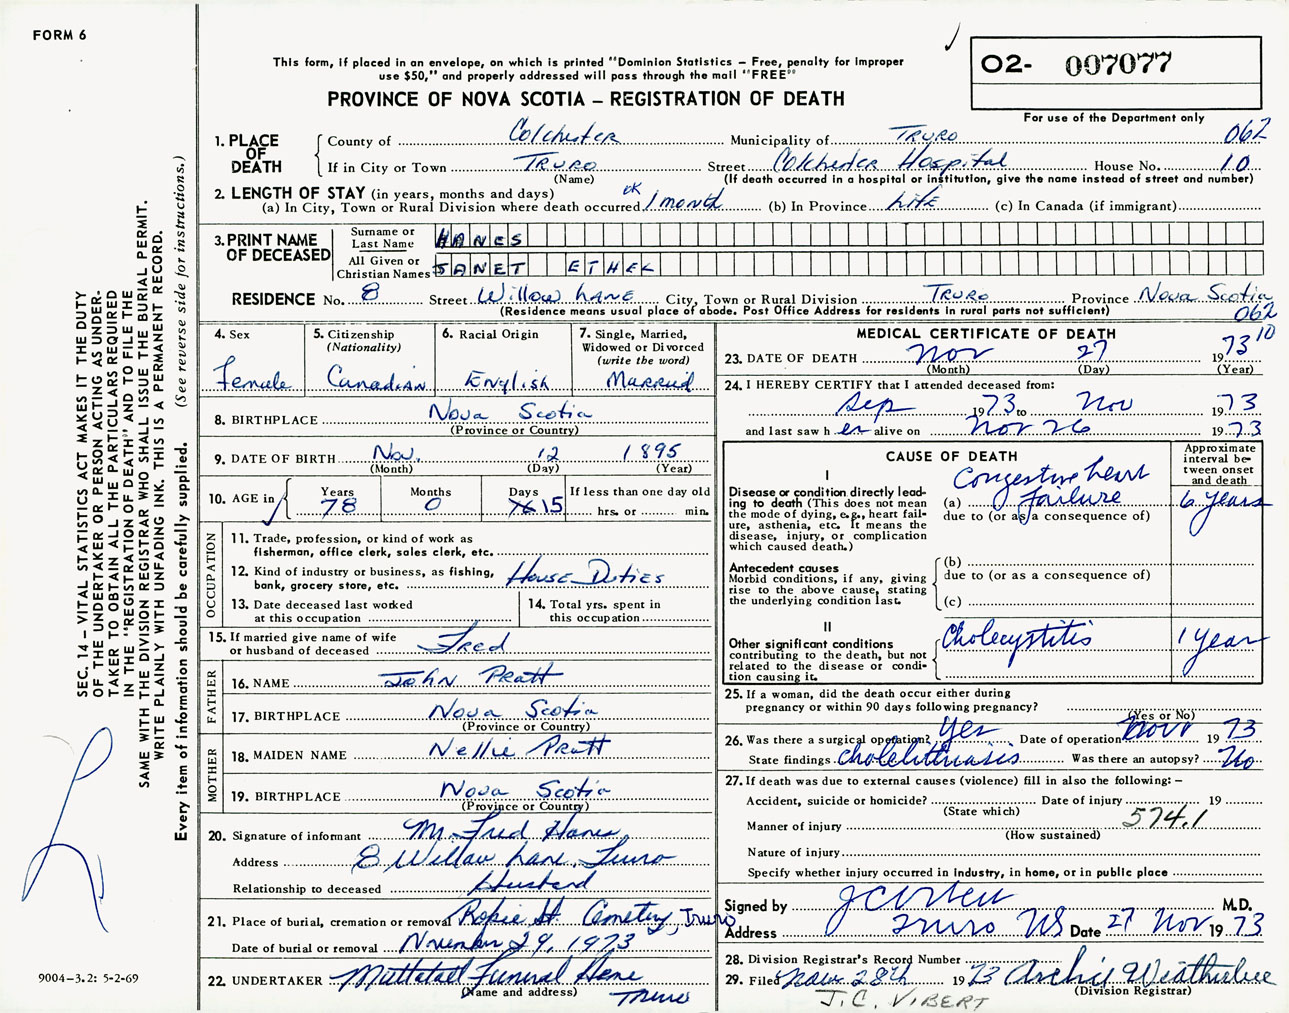 FORM 6
This form, if placed in an envelope, on which is printed "Dominion Statistics – Free, penalty for improper
use $50," and properly addressed will pass through the mail "FREE"
PROVINCE OF NOVA SCOTIA – REGISTRATION OF DEATH
O2- 007077
For use of the Department only
1. PLACE OF DEATH
County of Colchester Municipality of Truro 062
If in City or Town Truro Street Colchester Hospital House No. 10
(Name) (If death occurred in a hospital or institution, give the name instead of street and number)
2. LENGTH OF STAY (in years, months and days)
(a) In City, Town or Rural Division where death occurred 1 month (b) In Province Life (c) In Canada (if immigrant)
3. PRINT NAME OF DECEASED
Surname or Last Name HANES
All Given or Christian Names JANET ETHEL
RESIDENCE No. 8 Street Willow Lane City, Town or Rural Division Truro Province Nova Scotia
(Residence means usual place of abode. Post Office Address for residents in rural parts not sufficient) 062
4. Sex Female
5. Citizenship (Nationality) Canadian
6. Racial Origin English
7. Single, Married, Widowed or Divorced (write the word) Married
8. BIRTHPLACE Nova Scotia
(Province or Country)
9. DATE OF BIRTH Nov. 12 1895
(Month) (Day) (Year)
10. AGE in Years 78 Months 0 Days 15 If less than one day old
hrs. or min.
OCCUPATION
11. Trade, profession, or kind of work as
fisherman, office clerk, sales clerk, etc.
12. Kind of industry or business, as fishing,
bank, grocery store, etc. House Duties
13. Date deceased last worked
at this occupation
14. Total yrs. spent in
this occupation
15. If married give name of wife
or husband of deceased Fred
FATHER
16. NAME John Pratt
17. BIRTHPLACE Nova Scotia
(Province or Country)
MOTHER
18. MAIDEN NAME Nellie Pratt
19. BIRTHPLACE Nova Scotia
(Province or Country)
20. Signature of informant Mr. Fred Hanes
Address 8 Willow Lane, Truro
Relationship to deceased Husband
21. Place of burial, cremation or removal Robie St. Cemetery, Truro
Date of burial or removal November 29, 1973
22. UNDERTAKER Mattatall Funeral Home
(Name and address) Truro
MEDICAL CERTIFICATE OF DEATH
23. DATE OF DEATH Nov 27 1973 10
(Month) (Day) (Year)
24. I HEREBY CERTIFY that I attended deceased from:
Sep 1973 to Nov 1973
and last saw her alive on Nov 26 1973
CAUSE OF DEATH
Approximate interval between onset and death
I
Disease or condition directly lead-
ing to death (This does not mean
the mode of dying, e.g., heart fail-
ure, asthenia, etc. It means the
disease, injury, or complication
which caused death.)
(a) Congestive heart failure 6 years
due to (or as a consequence of)
Antecedent causes
Morbid conditions, if any, giving
rise to the above cause, stating
the underlying condition last.
(b)
due to (or as a consequence of)
(c)
II
Other significant conditions
contributing to the death, but not
related to the disease or condi-
tion causing it.
Cholecystitis 1 year
25. If a woman, did the death occur either during
pregnancy or within 90 days following pregnancy?
(Yes or No)
26. Was there a surgical operation? Yes Date of operation Nov 1973
State findings cholelithiasis Was there an autopsy? No
27. If death was due to external causes (violence) fill in also the following: –
Accident, suicide or homicide? Date of injury 19
(State which)
Manner of injury 574.1
(How sustained)
Nature of injury
Specify whether injury occurred in industry, in home, or in public place
Signed by M.D.
Address Truro NS Date 27 Nov 1973
28. Division Registrar's Record Number
29. Filed Nov. 28th 1973 Archie Weatherbee
(Division Registrar)
J.C. VIBERT
SEC. 14 – VITAL STATISTICS ACT MAKES IT THE DUTY
OF THE UNDERTAKER OR PERSON ACTING AS UNDER-
TAKER TO OBTAIN ALL THE PARTICULARS REQUIRED
IN THE "REGISTRATION OF DEATH" AND TO FILE THE
SAME WITH THE DIVISION REGISTRAR WHO SHALL ISSUE THE BURIAL PERMIT.
WRITE PLAINLY WITH UNFADING INK. THIS IS A PERMANENT RECORD.
Every item of information should be carefully supplied. (See reverse side for instructions.)
9004–3.2: 5-2-69